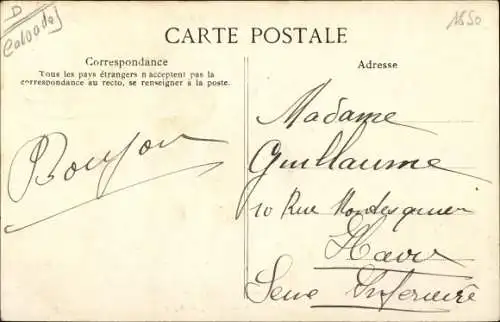 D
Calvados
1850
CARTE POSTALE
Correspondance
Tous les pays étrangers n'acceptent pas la
correspondance au recto, se renseigner à la poste.
Adresse
Bonjour
Madame
Guillaume
10 Rue Montesquieu
Havre
Seine Inférieure